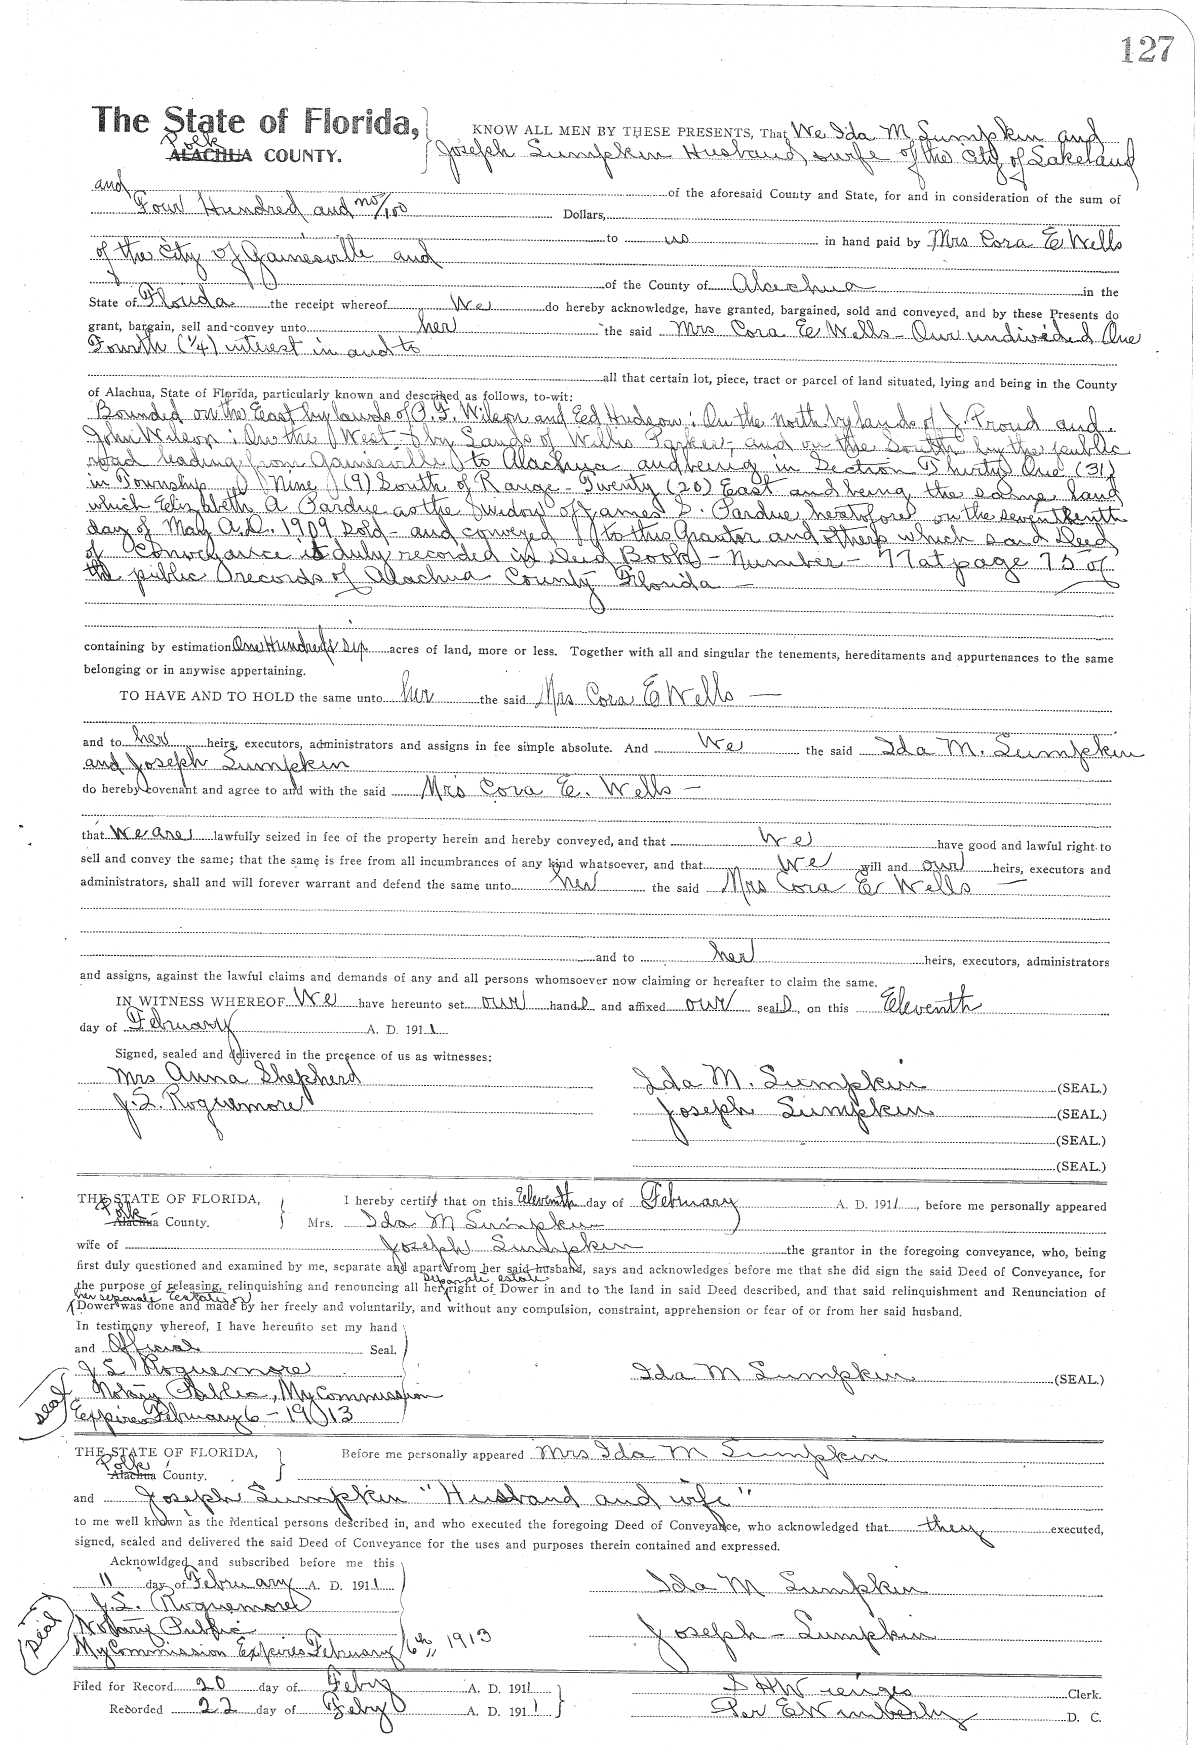 127
The State of Florida,
Polk
ALACHUA COUNTY.
KNOW ALL MEN BY THESE PRESENTS, That We Ida M Lumpkin and
Joseph Lumpkin Husband, wife of the City of Lakeland
and of the aforesaid County and State, for and in consideration of the sum of
Four Hundred and no/100 Dollars,
to us in hand paid by Mrs Cora E Wells
of the City of Gainesville and
of the County of Alachua in the
State of Florida the receipt whereof We do hereby acknowledge, have granted, bargained, sold and conveyed, and by these Presents do
grant, bargain, sell and convey unto her the said Mrs Cora E Wells - Our undivided One
Fourth (1/4) interest in and to
all that certain lot, piece, tract or parcel of land situated, lying and being in the County
of Alachua, State of Florida, particularly known and described as follows, to-wit:
Bounded on the East by lands of P. F. Wilson and Ed Hudson; On the north by lands of J. Proud and
John Wilson; On the West by Lands of Willis Parker, and on the South by the public
road leading from Gainesville to Alachua and being in Section Thirty One (31)
in Township Nine (9) South of Range - Twenty (20) East and being the same land
which Elizabeth A Pardue as the widow of James S. Pardue heretofore on the seventeenth
day of May A.D. 1909 sold - and conveyed to this Grantor and others which said Deed
of Conveyance is duly recorded in Deed Book - Number - 77 at page 75 of
the public records of Alachua County Florida -
containing by estimation One Hundred & six acres of land, more or less. Together with all and singular the tenements, hereditaments and appurtenances to the same
belonging or in anywise appertaining.
TO HAVE AND TO HOLD the same unto her the said Mrs Cora E Wells -
and to her heirs, executors, administrators and assigns in fee simple absolute. And We the said Ida M. Lumpkin
and Joseph Lumpkin
do hereby covenant and agree to and with the said Mrs Cora E. Wells -
that we are lawfully seized in fee of the property herein and hereby conveyed, and that We have good and lawful right to
sell and convey the same; that the same is free from all incumbrances of any kind whatsoever, and that We will and our heirs, executors and
administrators, shall and will forever warrant and defend the same unto her the said Mrs Cora E Wells -
and to her heirs, executors, administrators
and assigns, against the lawful claims and demands of any and all persons whomsoever now claiming or hereafter to claim the same.
IN WITNESS WHEREOF We have hereunto set our hands and affixed our seals, on this Eleventh
day of February A. D. 1911
Signed, sealed and delivered in the presence of us as witnesses:
Mrs Anna Shepherd
J. L. Roquemore
Ida M. Lumpkin (SEAL.)
Joseph Lumpkin (SEAL.)
(SEAL.)
(SEAL.)
THE STATE OF FLORIDA,
Polk
Alachua County.
I hereby certify that on this Eleventh day of February A. D. 1911, before me personally appeared
Mrs. Ida M Lumpkin
wife of Joseph Lumpkin the grantor in the foregoing conveyance, who, being
first duly questioned and examined by me, separate and apart from her said husband, says and acknowledges before me that she did sign the said Deed of Conveyance, for
separate estate
the purpose of releasing, relinquishing and renouncing all her right of Dower in and to the land in said Deed described, and that said relinquishment and Renunciation of
her separate Estate or
Dower was done and made by her freely and voluntarily, and without any compulsion, constraint, apprehension or fear of or from her said husband.
In testimony whereof, I have hereunto set my hand
and Official Seal.
J L Roquemore
Notary Public, My Commission
Expires February 6 - 1913
seal
Ida M Lumpkin (SEAL.)
THE STATE OF FLORIDA,
Polk
Alachua County.
Before me personally appeared Mrs Ida M Lumpkin
and Joseph Lumpkin "Husband and wife"
to me well known as the identical persons described in, and who executed the foregoing Deed of Conveyance, who acknowledged that they executed,
signed, sealed and delivered the said Deed of Conveyance for the uses and purposes therein contained and expressed.
Acknowldged and subscribed before me this
11 day of February A. D. 1911
J. L. Roquemore
Notary Public
My Commission Expires February 6th, 1913
seal
Ida M Lumpkin
Joseph - Lumpkin
Filed for Record 20 day of Feby A. D. 1911
Recorded 22 day of Feby A. D. 1911
S H Wienges Clerk.
Per E Wimberly D. C.